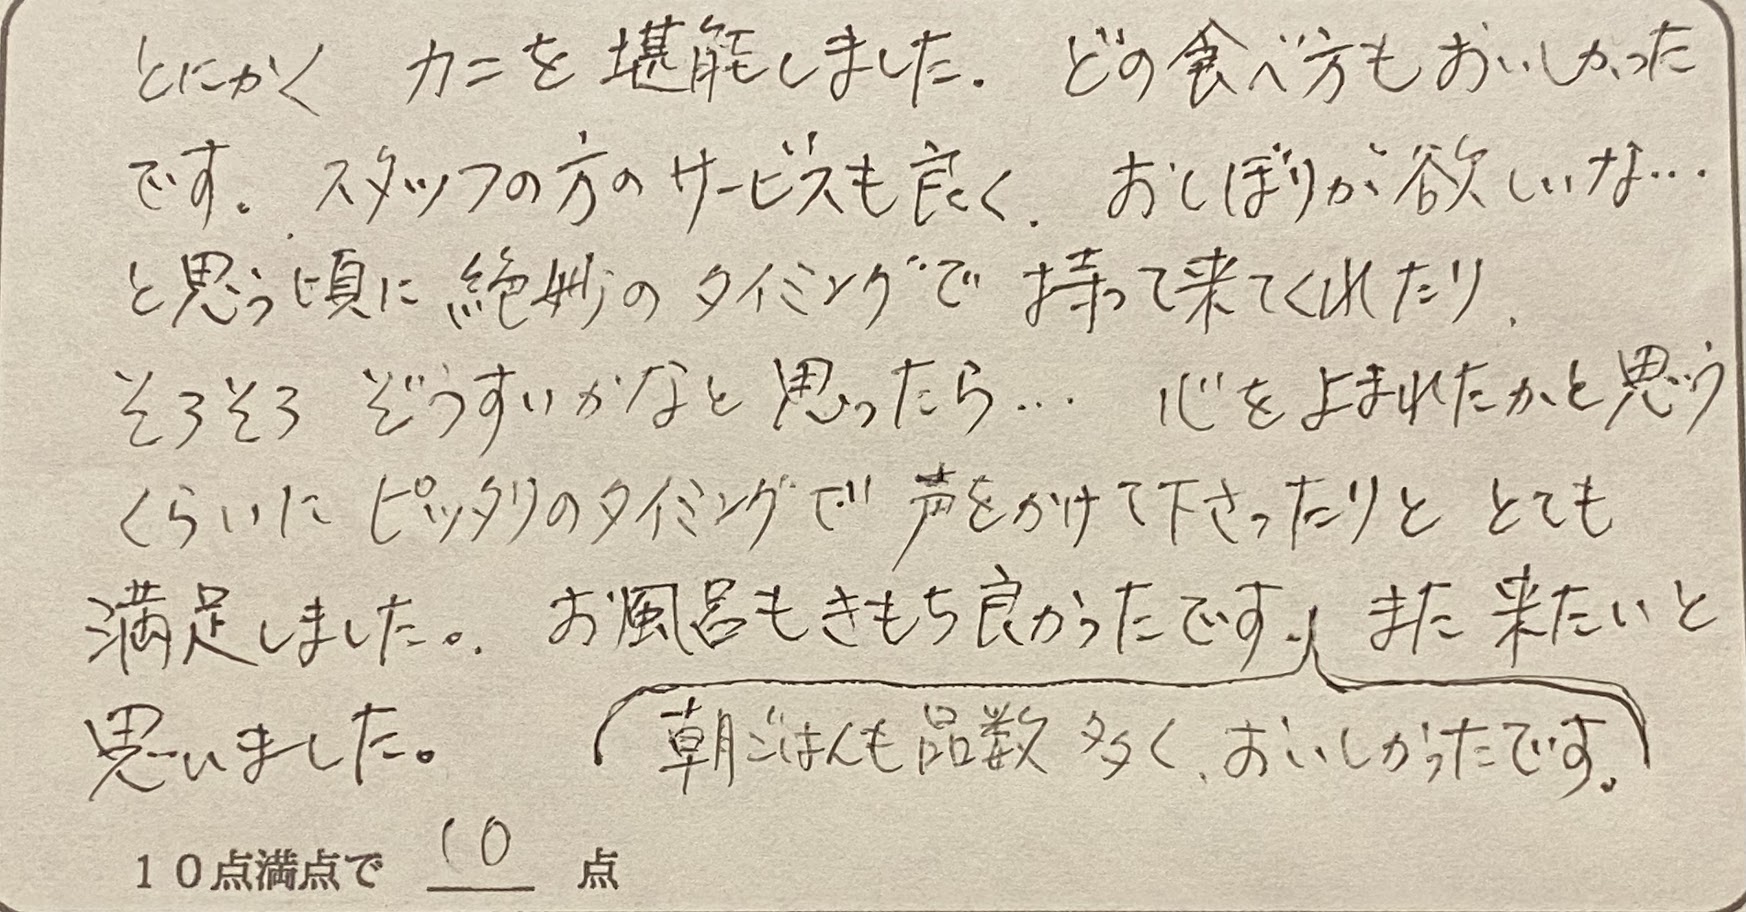 とにかく カニを堪能しました。 どの食べ方もおいしかった
です。 スタッフの方のサービスも良く、 おしぼりが欲しいな…
と思う頃に 絶妙のタイミングで 持って来てくれたり、
そろそろ ぞうすいかなと思ったら… 心をよまれたかと思う
くらいに ピッタリのタイミングで 声をかけて下さったりと とても
満足しました。 お風呂もきもち良かったです。 また来たいと
思いました。 朝ごはんも品数多く、おいしかったです。
10点満点で 10 点